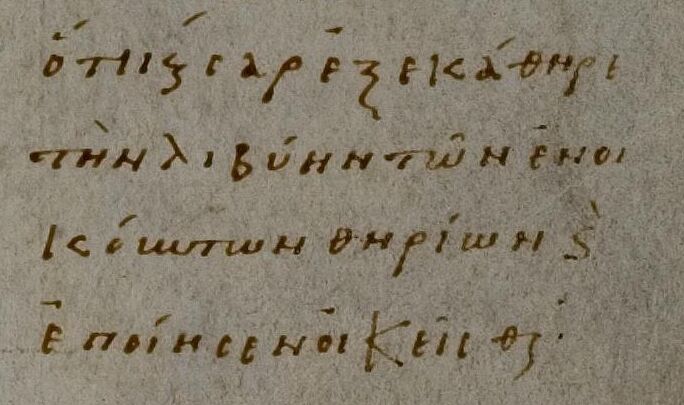 ὅτι ἐξεκάθηρε
τὴν λιβύην τῶν ἐνοι
κούντων θηρίων ϗ
ἐποίησεν οἰκεῖσθ